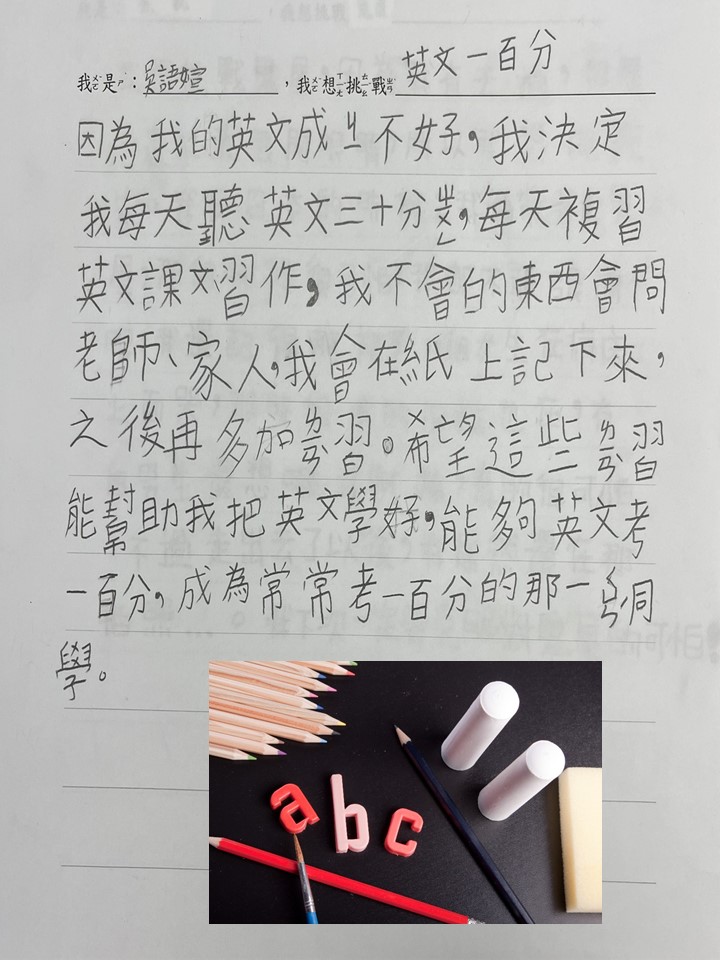 我ㄨㄛˇ是ㄕˋ：吳語媗，我ㄨㄛˇ想ㄒㄧㄤˇ挑ㄊㄧㄠˇ戰ㄓㄢˋ英文一百分
因為我的英文成ㄐㄧ不好，我決定
我每天聽英文三十分，每天複習
英文課文、習作，我不會的東西會問
老師、家人，我會在紙上記下來，
之後再多加ㄌㄢ習。希望這些ㄌㄢ習
能幫助我把英文學好，能夠英文考
一百分，成為常常考一百分的那一同
學。
abc